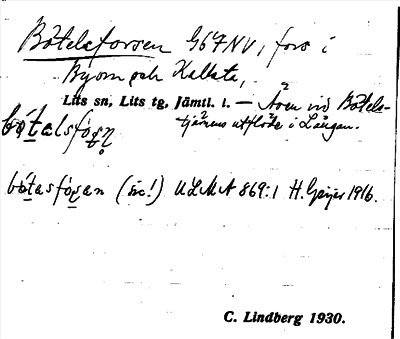 Bötelsforsen 967NV, fors i
Byom och Kalbata,
Lits sn, Lits tg, Jämtl. l. – Även vid Bötels-
tjärnens utflöde i Långan.
bo̱talsfo̱ṣn̥
bo̱tasfo̱ṣan (sic!) ULMA 869:1 H. Geijer 1916.
C. Lindberg 1930.